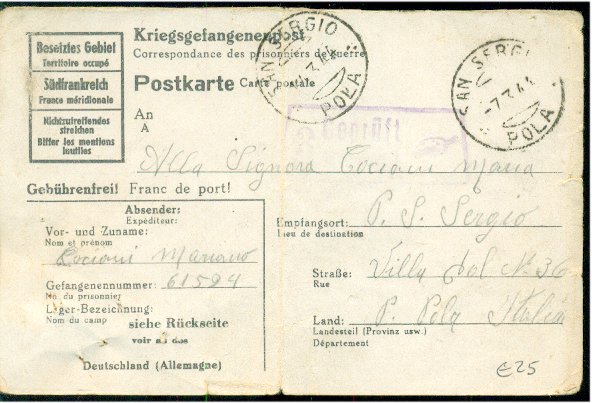 Kriegsgefangenenpost
Correspondance des prisonniers de guerre
Postkarte Carte postale
Besetztes Gebiet
Territoire occupé
Südfrankreich
France méridionale
Nichtzutreffendes
streichen
Biffer les mentions
inutiles
SAN SERGIO
POLA
SAN SERGIO
-7.3.44
POLA
Geprüft
An
A
Alla Signora Cociani Maria
Gebührenfrei! Franc de port!
Absender:
Expéditeur:
Vor- und Zuname:
Nom et prénom
Cociani Mariano
Gefangenennummer: 61594
No. du prisonnier
Lager-Bezeichnung:
Nom du camp
siehe Rückseite
voir au dos
Deutschland (Allemagne)
Empfangsort: P. S. Sergio
Lieu de destination
Straße: Villa dol No 36
Rue
Land: P. Pola Italia
Landesteil (Provinz usw.)
Département
€25